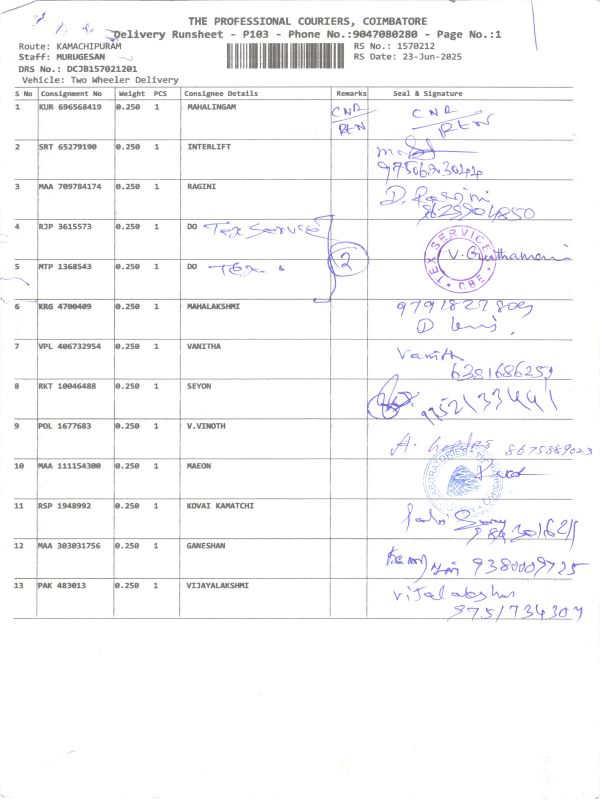 THE PROFESSIONAL COURIERS, COIMBATORE
Delivery Runsheet - P103 - Phone No.:9047080280 - Page No.:1
Route: KAMACHIPURAM
RS No.: 1570212
Staff: MURUGESAN
RS Date: 23-Jun-2025
DRS No.: DCJB157021201
Vehicle: Two Wheeler Delivery
S No Consignment No Weight PCS Consignee Details Remarks Seal & Signature
1 KUR 696568419 0.250 1 MAHALINGAM CNR REN CNR REN
2 SRT 65279190 0.250 1 INTERLIFT
3 MAA 709784174 0.250 1 RAGINI D. Ragini
4 RJP 3615573 0.250 1 DO Tex Service
TEX SERVICE CBE
5 MTP 1368543 0.250 1 DO Tex. 2
6 KRG 4700409 0.250 1 MAHALAKSHMI
7 VPL 406732954 0.250 1 VANITHA Vanith
6381686259
8 RKT 10046488 0.250 1 SEYON
9 POL 1677683 0.250 1 V.VINOTH A. 8675889023
10 MAA 111154300 0.250 1 MAEON
11 RSP 1948992 0.250 1 KOVAI KAMATCHI
12 MAA 303031756 0.250 1 GANESHAN 9380009725
13 PAK 483013 0.250 1 VIJAYALAKSHMI
9751734307